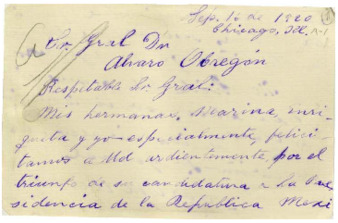 Sep. 1º de 1920
Chicago, Ill.
Sr Gral Dn
Alvaro Obregón
Respetable Sr Gral:
Mis hermanas, Marina, enri
queta y yo especialmente, felici
tamos a Ud ardientemente, por el
triunfo de su candidatura a la Pre
sidencia de la Republica Mexi